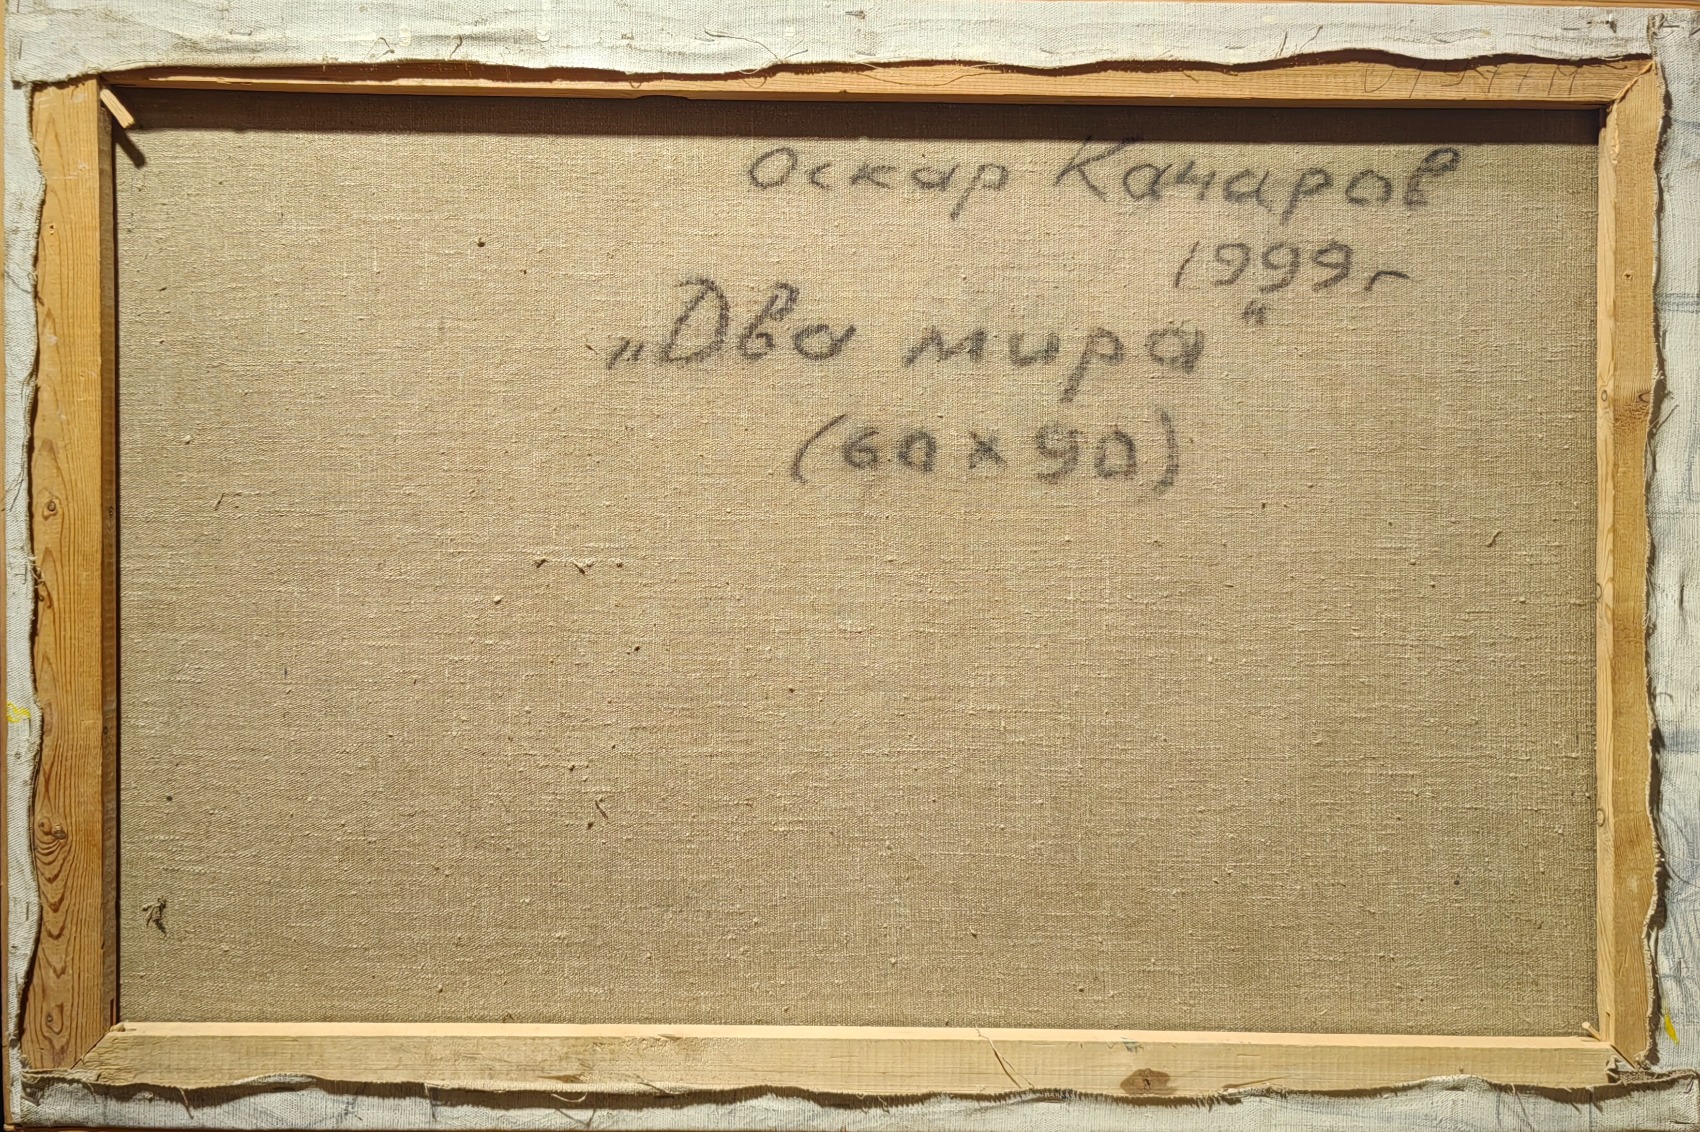 Оскар Качаров
1999г
„Два мира“
(60 х 90)